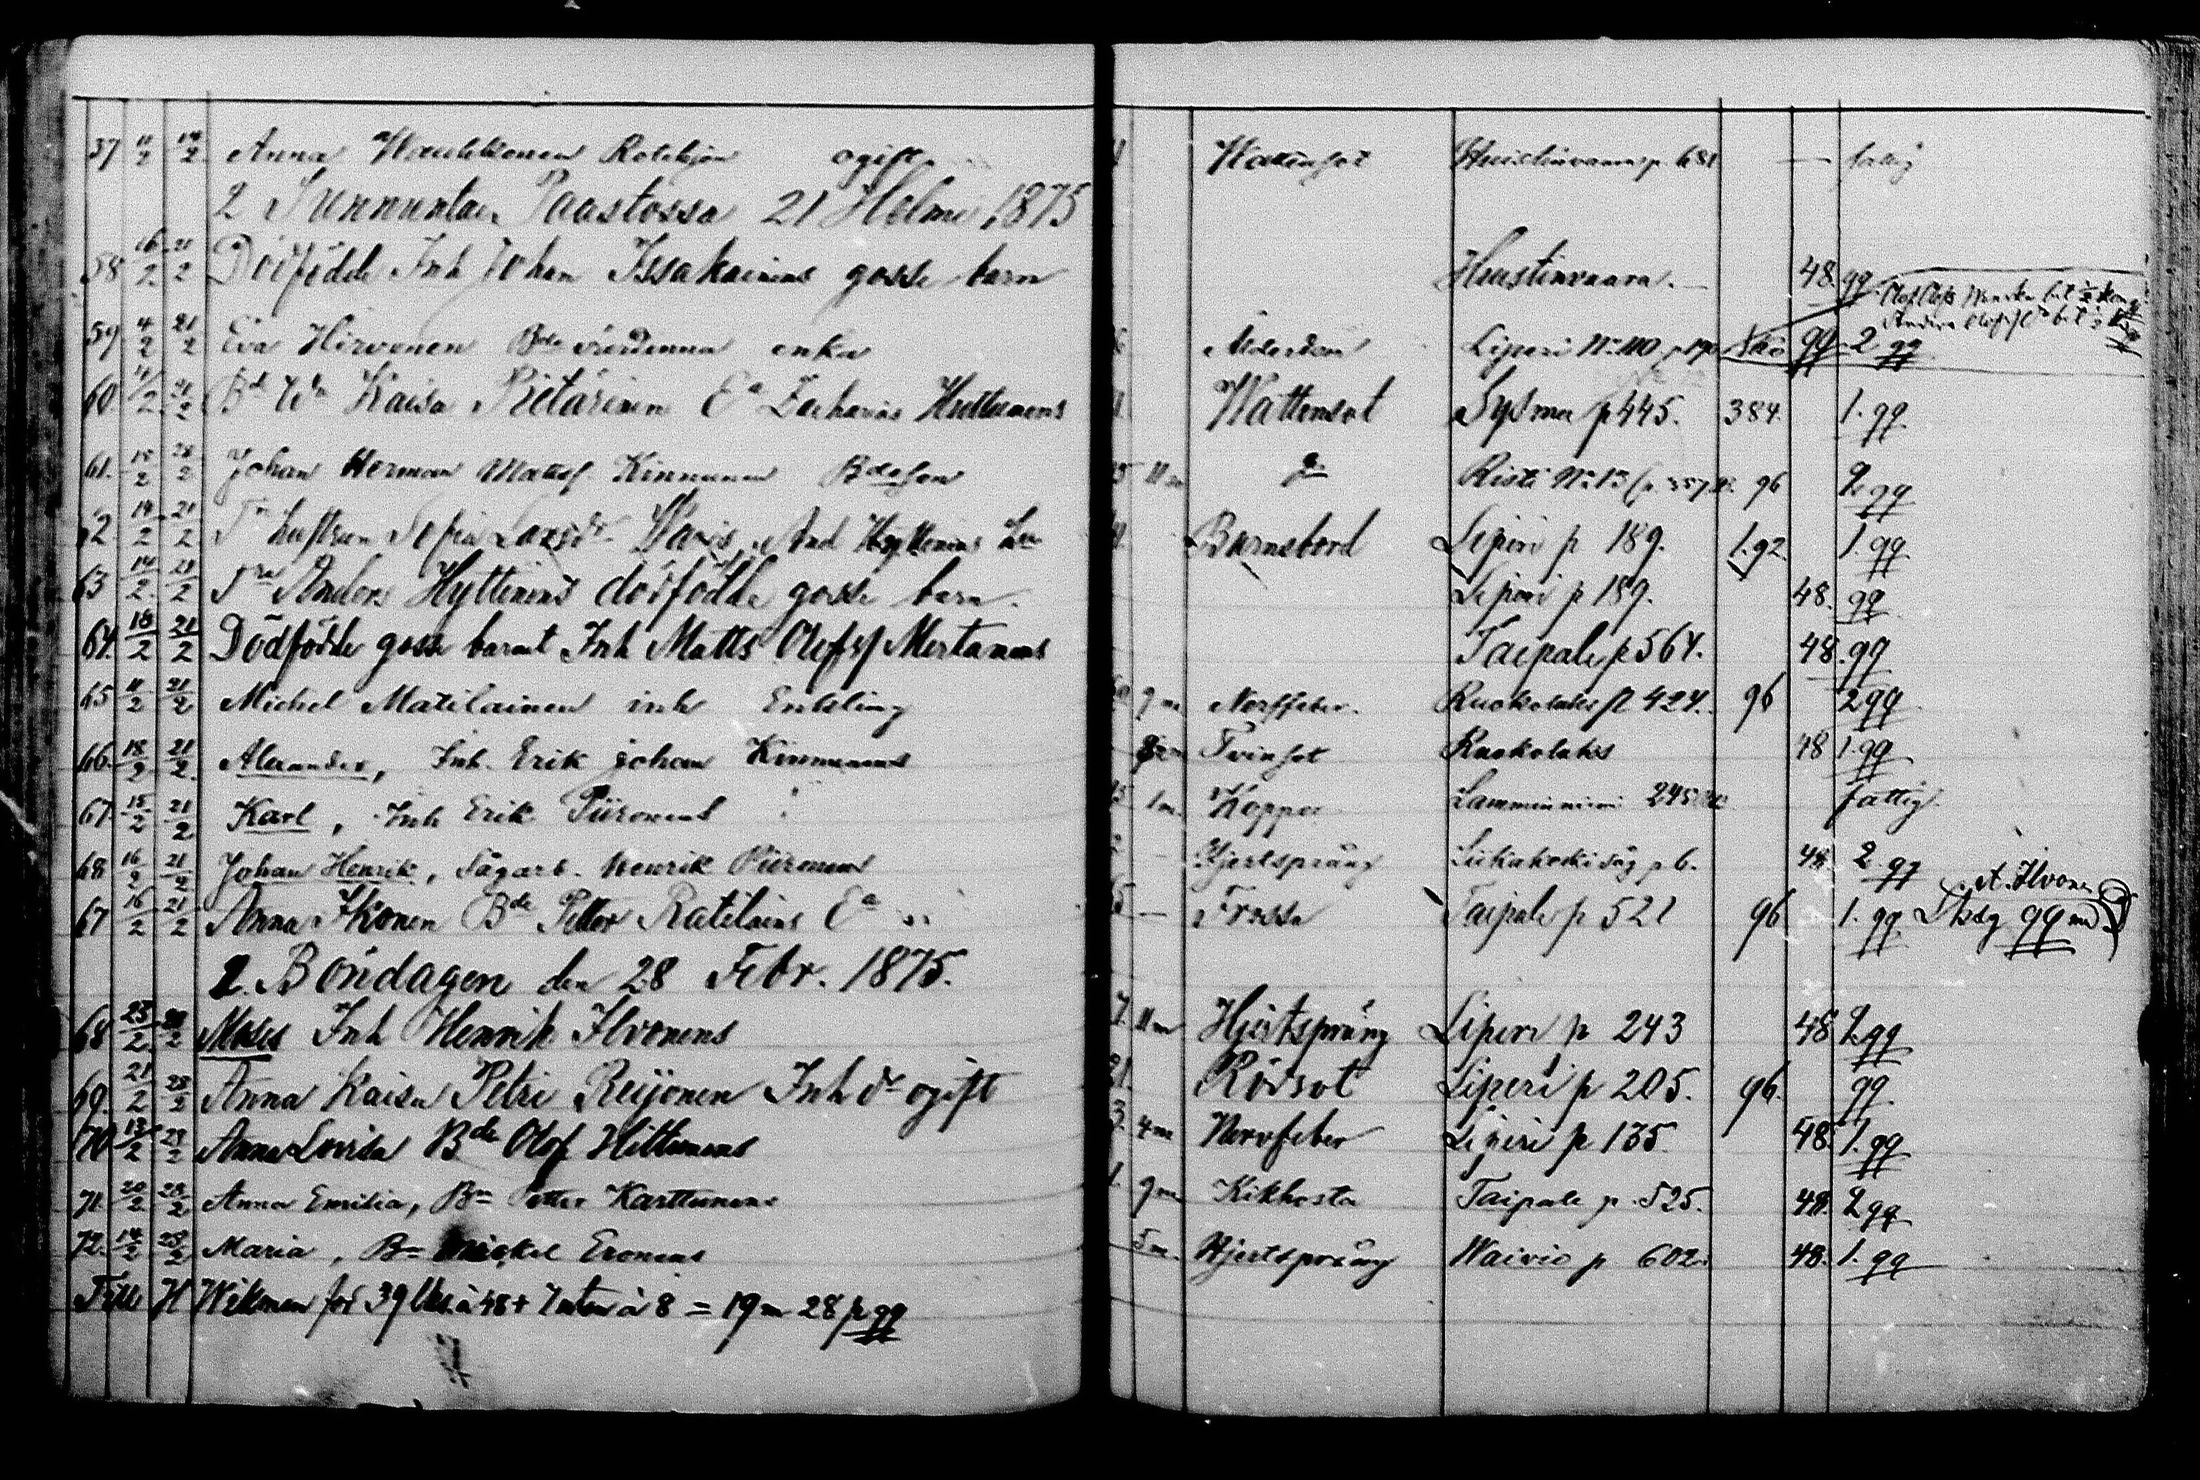 37 11/2 14/2 Anna Haukkonen ogift Wattusot p. 681 —
2 Sunnuntai Paastossa 21 Helmi 1875
58 16/2 21/2 Dödfödde Inh Johan Issakainens gosse barn Huistinvaara. — 48 qq
59 4/2 21/2 Eva Hirvonen Bde värdinna enka Ålderdom Liperi No 110 qq 2 qq
60 11/2 21/2 Bd Kaisa Pietarinen Ea Zacharias Huttunens Wattensot Sysmä p 445. 384. 1. qq
61. 15/2 28/2 Johan Herman Matts. Kinnunen Bdeson 11 m Risti 96 2 qq
62. 14/2 21/2 Sofia Larsdr And Hyttinens Barnsbörd Liperi p 189. 1.92 1. qq
63 14/2 21/2 Anders Hyttinens dödfödde gosse barn. Liperi p 189. 48. qq
64. 16/2 21/2 Dödfödde gosse barnet Inh Matts Olofsf Mertanens Taipale p 564. 48. qq
65 11/2 21/2 Michel Matilainen inh Enkling 9 m Nerffeber. Ruokolaks p 424. 96 2 qq
66. 18/2 21/2 Alexander, Inh. Erik Johan Kinnunens Tvinsot Ruokolaks 48 1. qq
67. 15/2 21/2 Karl, Inh Erik Piironens 1 m. Koppor Lamminniemi 245 fattig.
68 16/2 21/2 Johan Henrik, Sågarb. Henrik Piironens — Hjertsprång Siikakoski såg p 6. 48 2. qq
67 16/2 21/2 Anna Ikonen Bde Petter Ratilains Ea — Frossa Taipale p 521 96 1. qq A. Ilvonen qq
2. Böndagen den 28 Febr. 1875.
68 23/2 28/2 Moses Inh Henrik Ilvonens 7 11 m Hjertsprång Liperi p 243 48 2 qq
69. 21/2 28/2 Anna Kaisa Petri Reijonen Inh dr ogift 21 Rödsot Liperi p 205. 96. qq
70 13/2 28/2 Anna Lovisa Bde Olof Hiltunens 3 4 m Nervfeber Liperi p 135. 48. 1. qq
71. 20/2 28/2 Anna Emilia, Bn Petter Karttunens 1. 9 m Kikhosta Taipale p. 525. 48. 2 qq
72. 14/2 28/2 Maria, Bn Mickel Eronens 5 m. Hjertsprång Waivio p 602. 48. 1. qq
H Wikman för 39 à 48 + 7 à 8 = 19 m 28 p qq